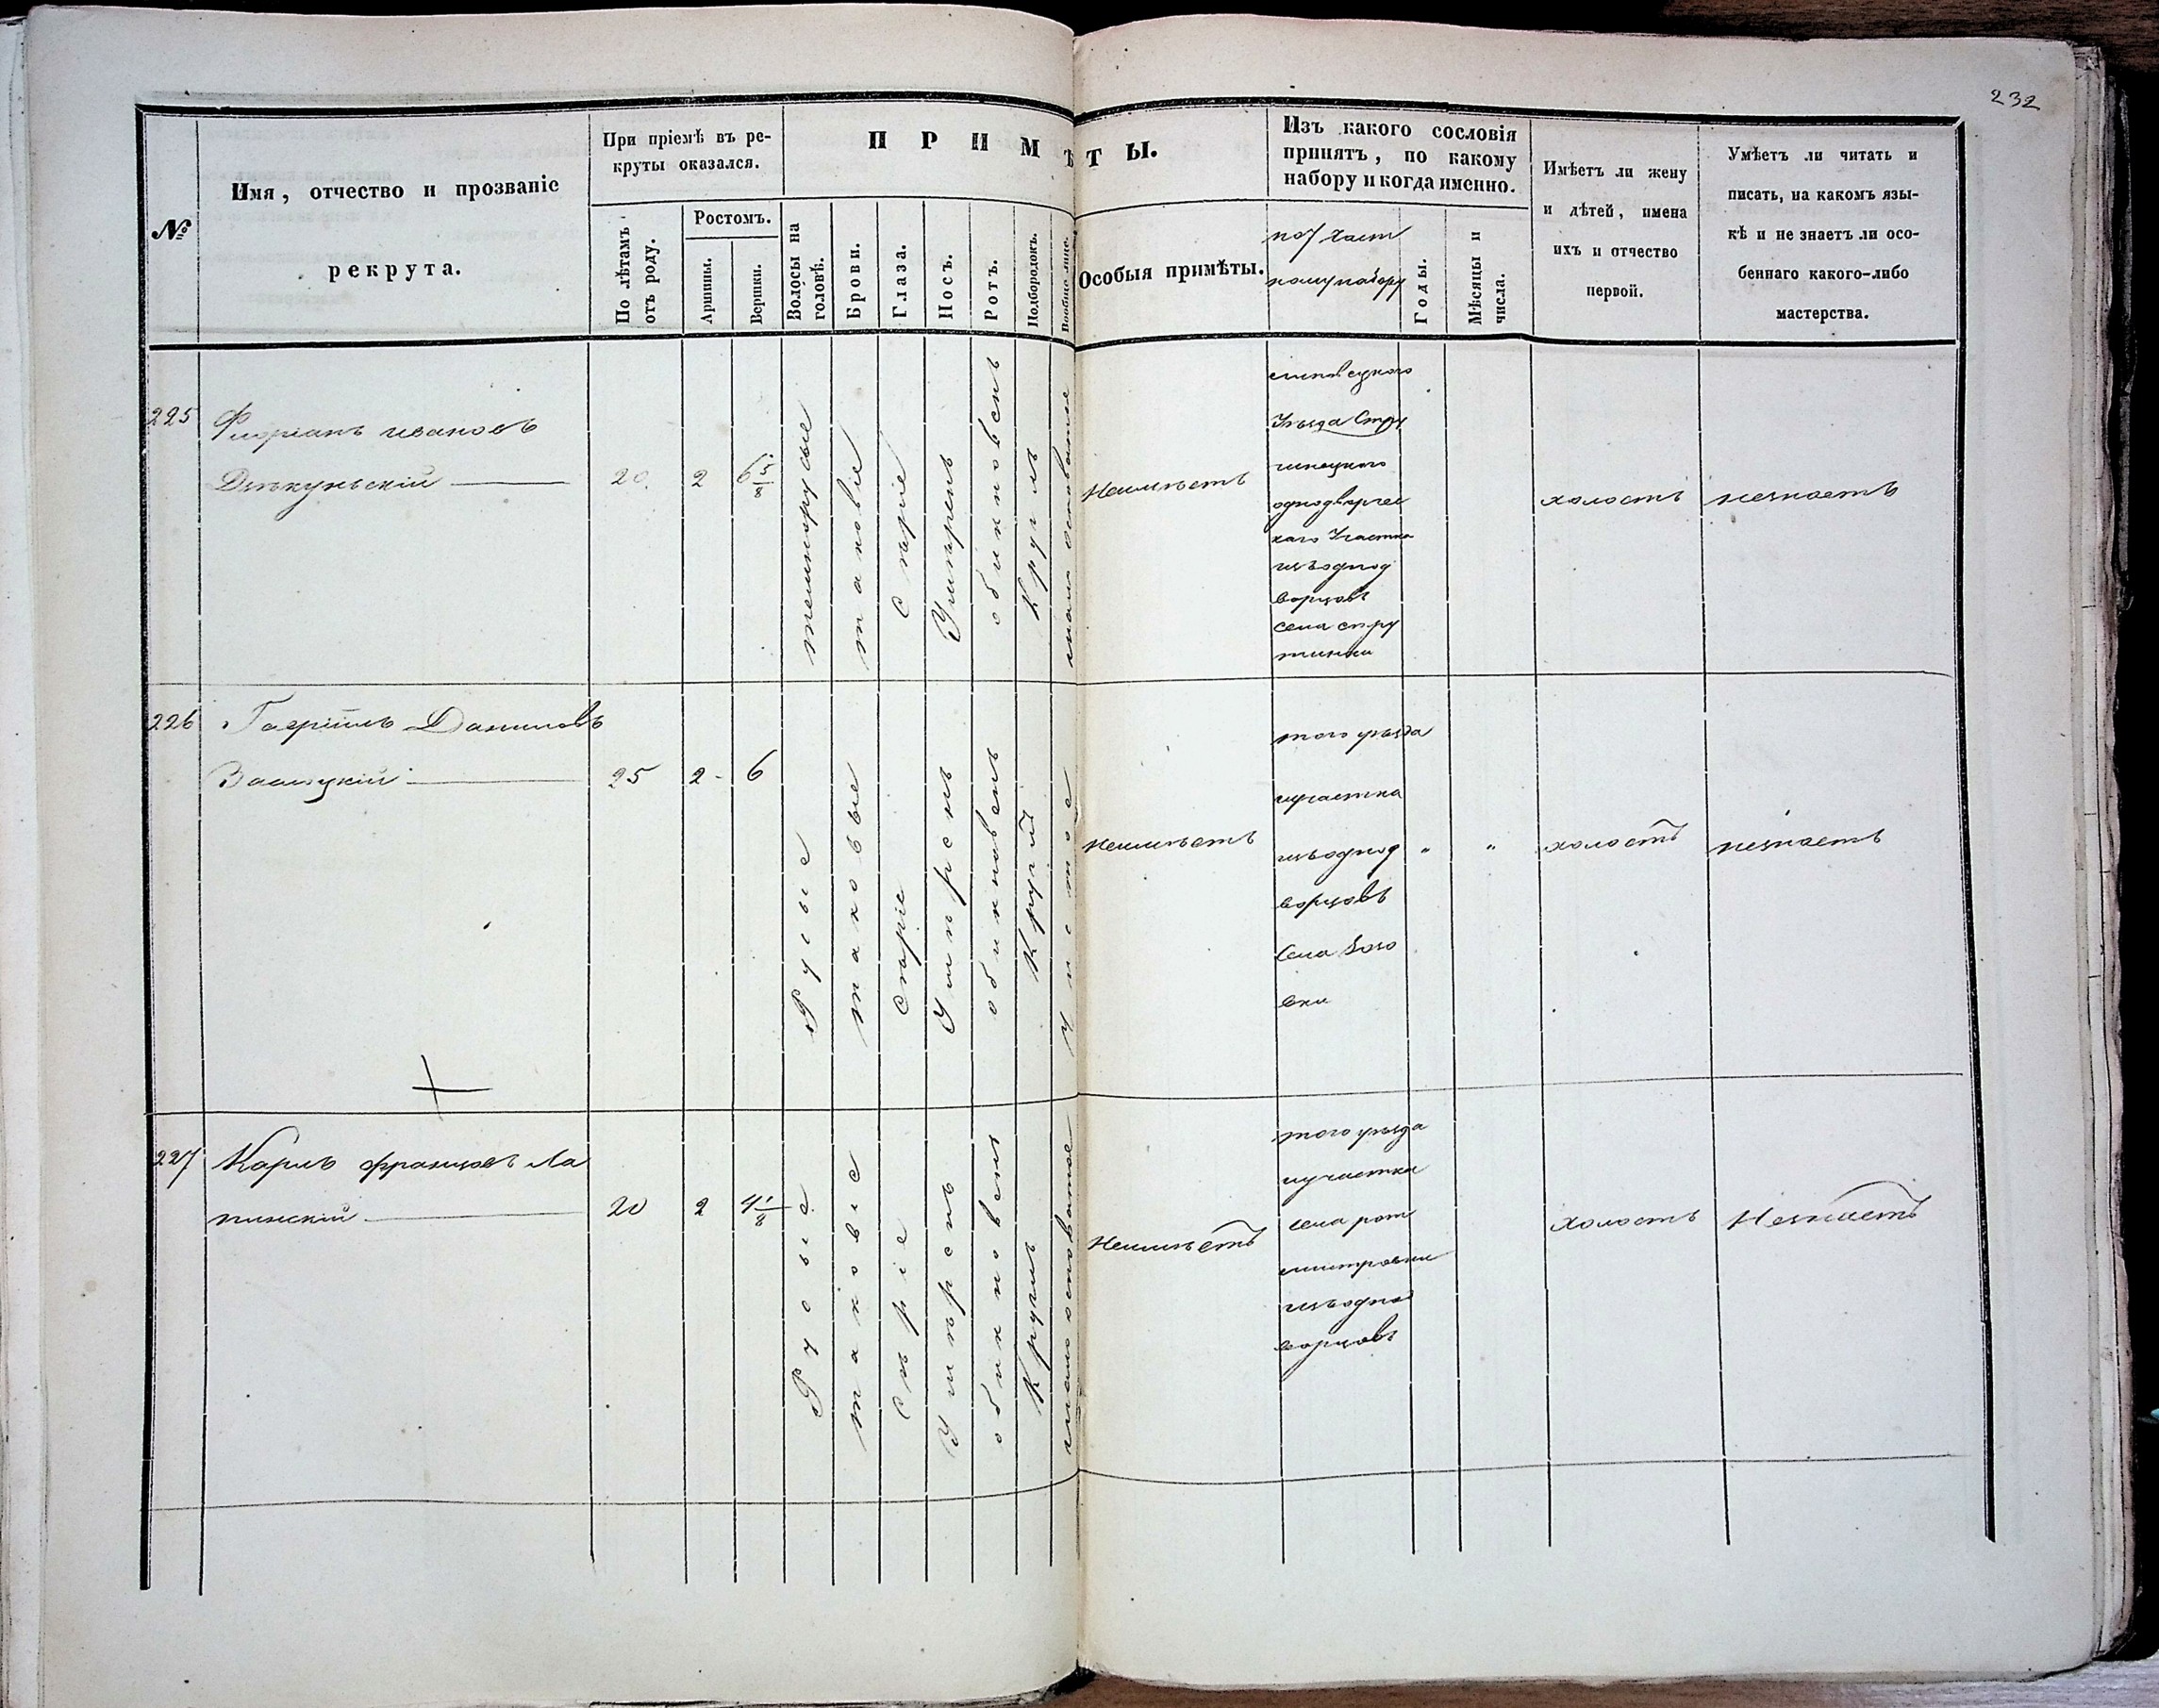 232
№
Имя, отчество и прозваніе
рекрута.
При пріемѣ въ ре-
круты оказался.
По лѣтамъ
отъ роду.
Ростомъ.
Аршины.
Вершки.
ПРИМѢТЫ.
Волосы на
головѣ.
Брови.
Глаза.
Носъ.
Ротъ.
Подбородокъ.
Вообще лице.
Особыя примѣты.
Изъ какого сословія
принятъ, по какому
набору и когда именно.
по 7 част
ному набору
Годы.
Мѣсяцы и
числа.
Имѣетъ ли жену
и дѣтей, имена
ихъ и отчество
первой.
Умѣетъ ли читать и
писать, на какомъ язы-
кѣ и не знаетъ ли осо-
беннаго какого-либо
мастерства.
225
Флоріанъ ивановъ
20
2
6 5/8
темнорусые
таковіе
сѣріе
Умѣренъ
обикновенъ
Круглъ
Неимѣетъ
Уѣзда Стру
однодворчес
каго Участка
изъоднод
ворцовъ
села стру
холостъ
незнаетъ
226
Гавріилъ Даниловъ
25
2
6
Русые
таковые
Сѣріе
Умѣренъ
обикновенъ
чистое
Неимѣетъ
того уѣзда
иучастка
изъоднод
ворцовъ
Села
вки
"
"
холостъ
незнаетъ
227
Карлъ францовъ Ла
пинскій
20
2
4 1/8
Русые
таковіе
Сѣріе
Умѣренъ
обикновенъ
Круглъ
Неимѣетъ
того уѣзда
иучастка
села рот
мистровки
изъоднод
ворцовъ
холостъ
Незнаетъ